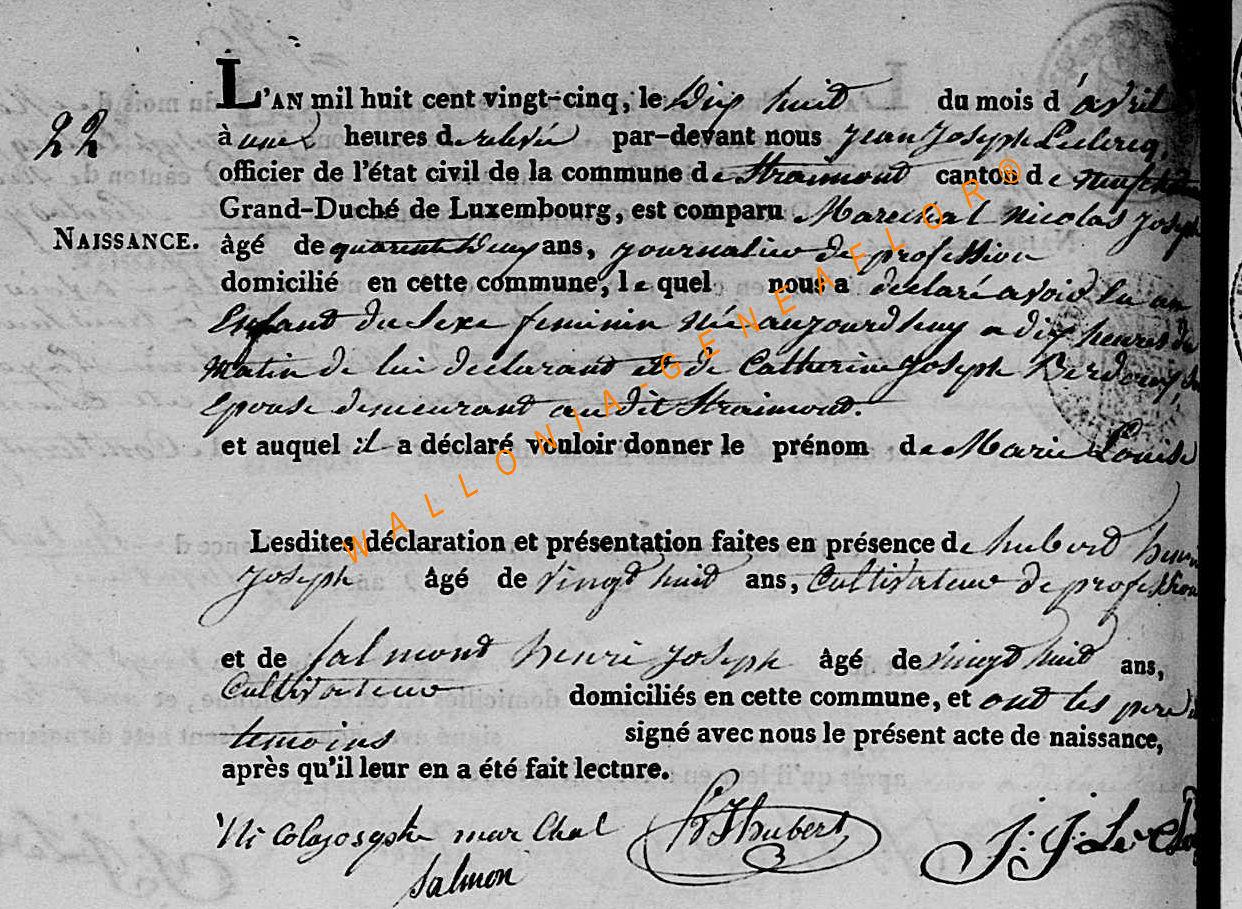 L'AN mil huit cent vingt-cinq, le Dix huit du mois d'avril
à une heures de relevé par-devant nous Jean Joseph Leclercq,
officier de l'état civil de la commune de Straimont canton de neufchateau
Grand-Duché de Luxembourg, est comparu Marechal Nicolas Joseph
22
NAISSANCE.
âgé de quarante Deux ans, journalier de profession
domicilié en cette commune, le quel nous a declaré avoir Eu un
Enfant du Sexe feminin Née aujourdhuy a dix heures du
Matin de lui declarant et de Catherine Joseph
Epouse demeurant au dit Straimont.
et auquel il a déclaré vouloir donner le prénom de Marie Louise
Lesdites déclaration et présentation faites en présence de hubert henri
Joseph âgé de vingt huit ans, Cultivateur de profession
et de Salmont henri Joseph âgé de vingt huit ans,
Cultivateur domiciliés en cette commune, et ont les pere et
temoins signé avec nous le présent acte de naissance,
après qu'il leur en a été fait lecture.
Nicolas josephe marchal
Salmon
hubert
J: J: Le
WALLONIA-GENEAFLOR®